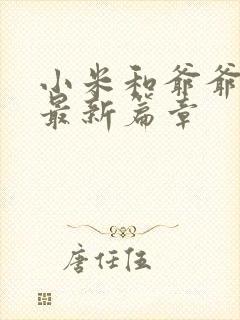 小米和爷爷
最新篇章
唐任伍